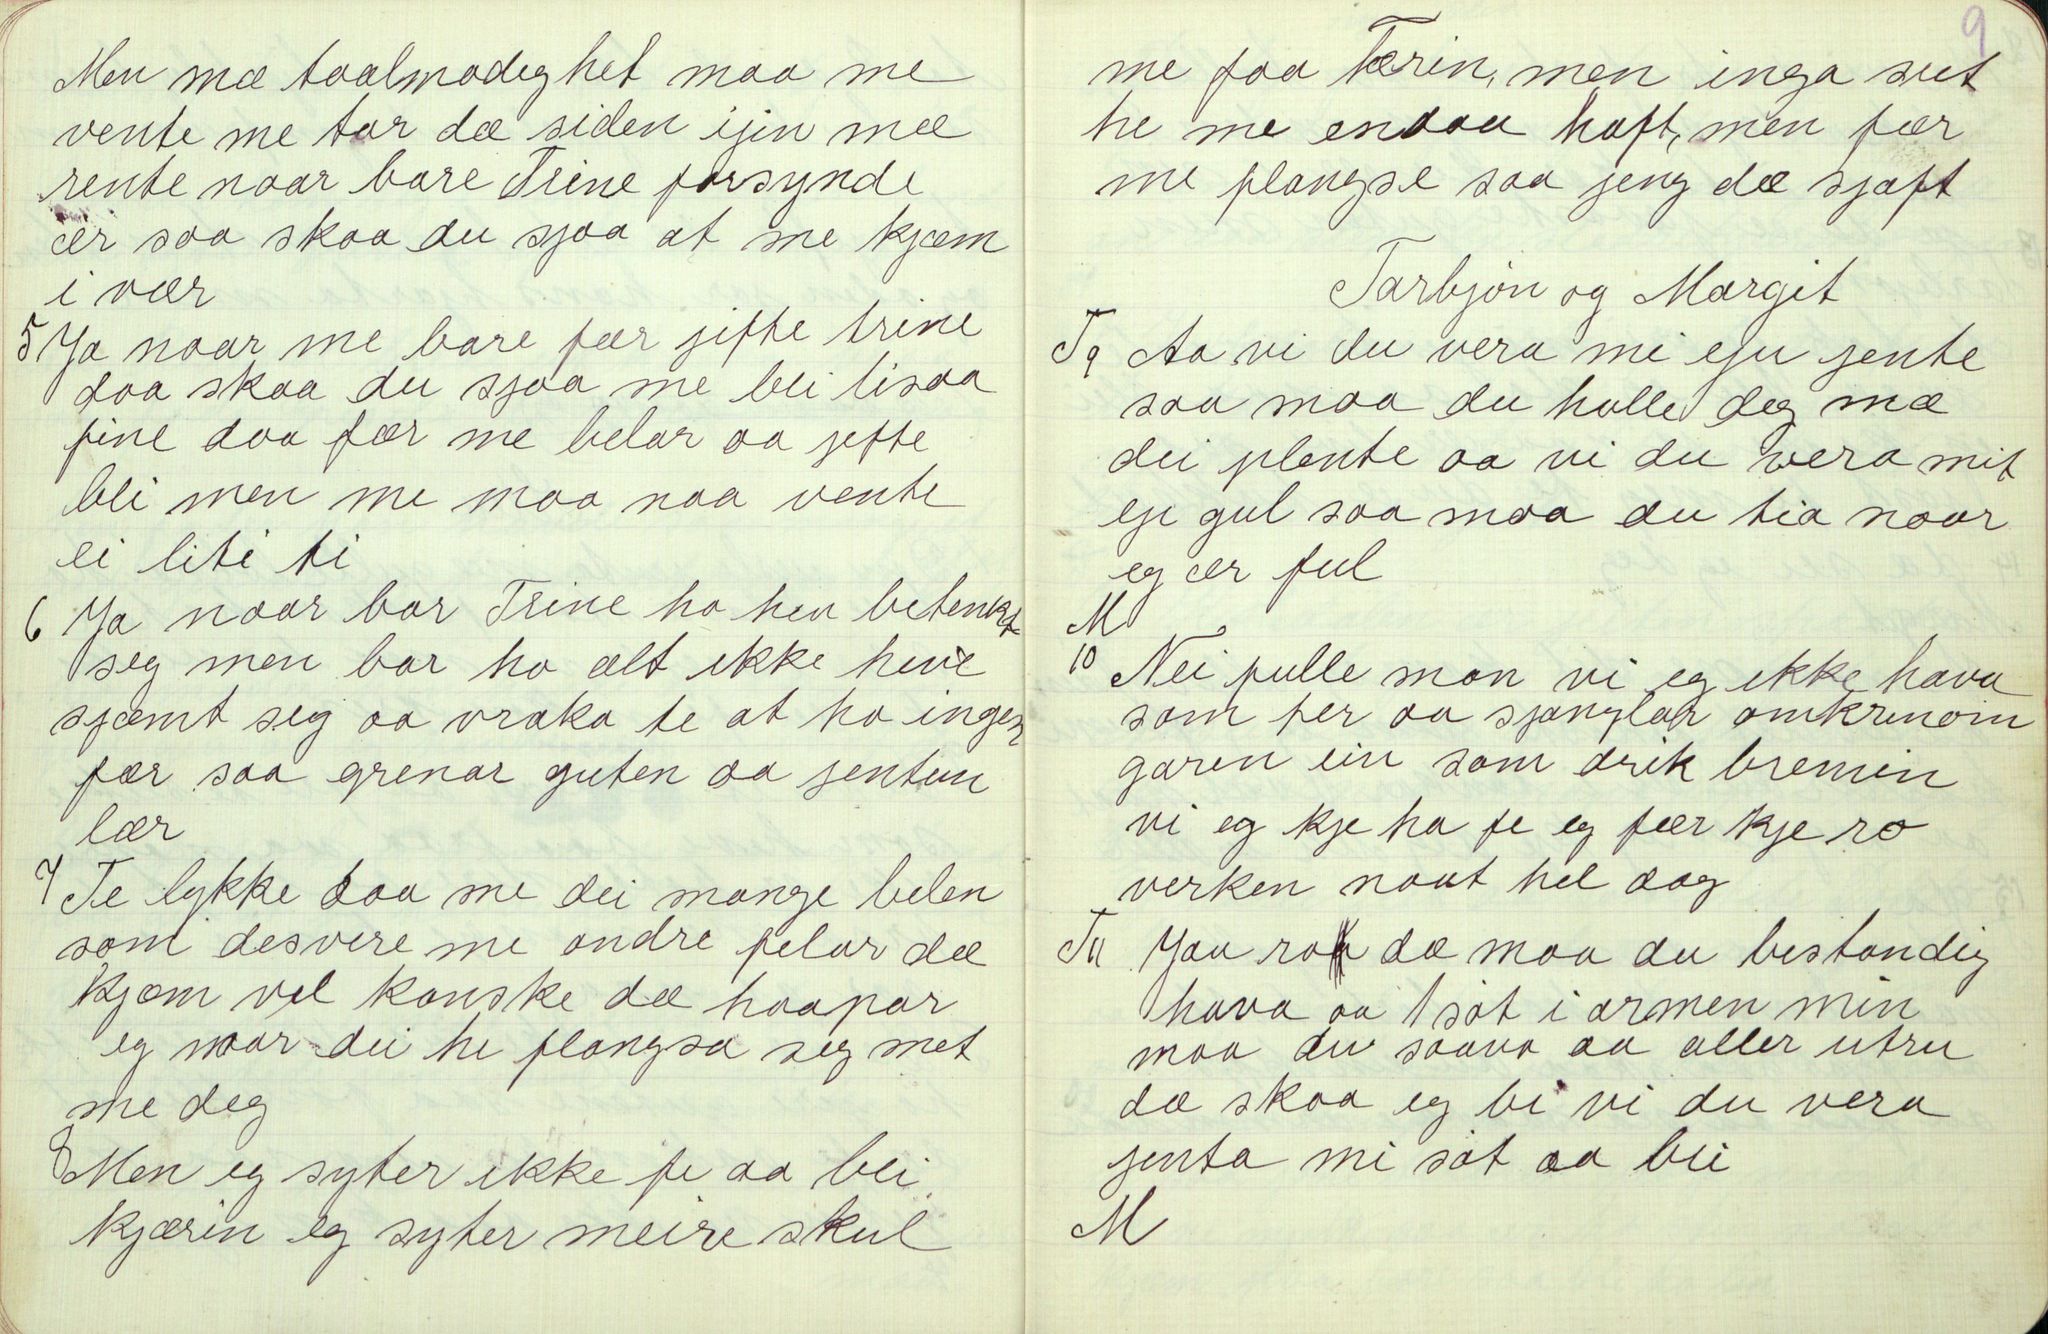 Men mæ taalmodeghet maa me
vente me tar dæ siden ijin mæ
rente naar bare Trine forsynde
ær saa skaa du sjaa at me kjæm
i vær
5 Ja naar me bare fær jifte trine
daa skaa du sjaa me bli lisaa
fine daa fær me belar aa jefte
bli men me maa naa vente
ei liti ti
6 Ja naar bar Trine ho hev betenkt
seg men bar ho ælt ikke heve
sjæmt seg aa vraka te at ho ingen
fær saa grenar guten aa jentun
lær
7 Te lykke daa me dei mange belen
som desvere me andre felar dæ
kjæm vel kanske dæ haapar
eg naar dei he flangsa seg met
me deg
8 Men eg syter ikke fe aa bli
kjærin eg syter meire skul
9
me faa Færin, men inga sut
he me endaa haft, men fær
me flangse saa jeng dæ sjaft
Tarbjøn og Margit
T9 Aa vi du vera mi eju jente
saa maa du halle deg mæ
dei plente aa vi du vera mit
eje gul saa maa du tia naar
eg ær ful
M
10 Nei fulle man vi eg ikke hava
som fer aa sjanglar omkrinom
garen ein som drik bremin
vi eg kje ha fe eg fær kje ro
verken naat hel dag
T11 Jaa ro dæ maa du bestandig
hava aa søt i armen min
maa du saava aa aller utru
dæ skaa eg bi vi du vera
jenta mi søt aa bli
M